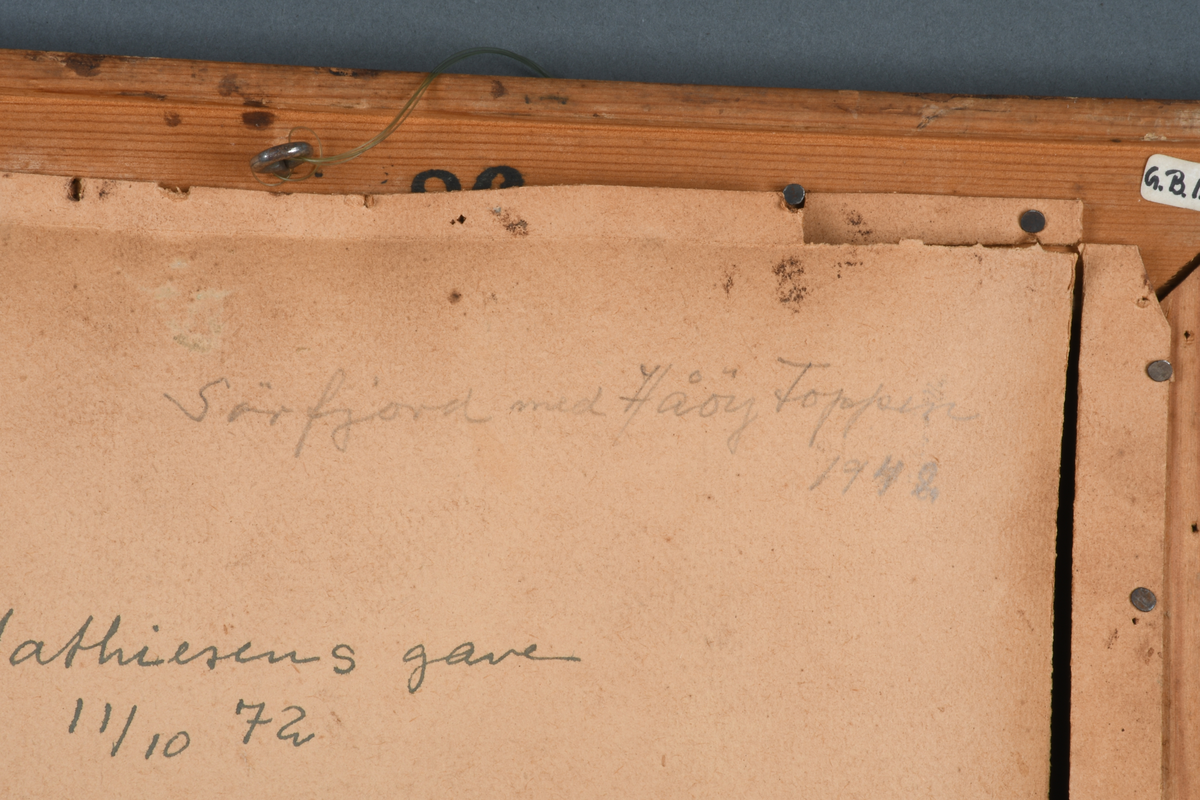 G.B.
Sörfjord med Håöy Toppen
1942
Mathiesens gave
11/10 72